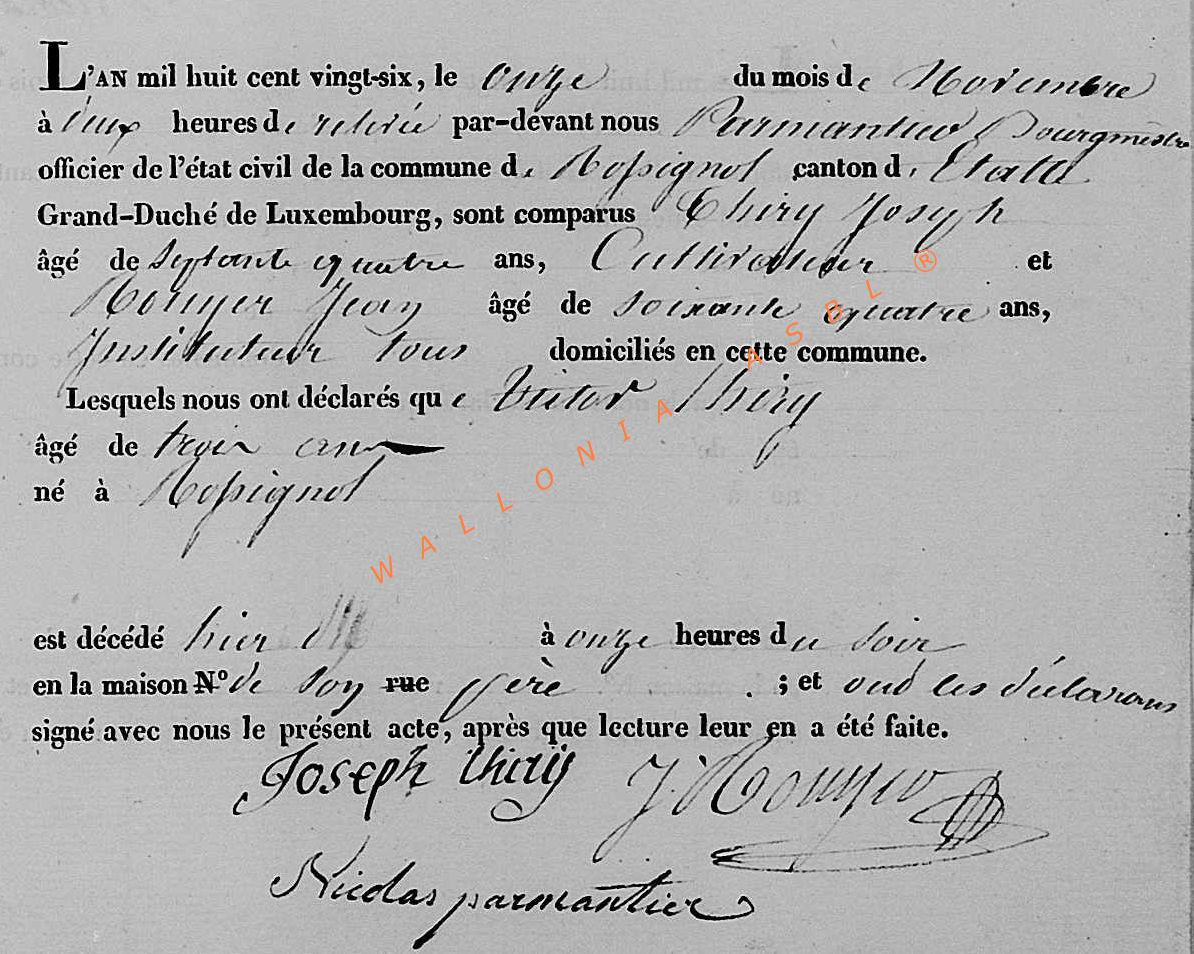 L'AN mil huit cent vingt-six, le onze du mois de Novembre
à deux heures de relevée par-devant nous Parmantier Bourgmestre
officier de l'état civil de la commune de Rossignol canton d'Etalle
Grand-Duché de Luxembourg, sont comparus Thiry Joseph
âgé de Septante quatre ans, Cultivateur et
Rouyer Jean âgé de soixante quatre ans,
Instituteur tous domiciliés en cette commune.
Lesquels nous ont déclarés que Victor Thiry
âgé de trois ans
né à Rossignol
est décédé hier à onze heures du soir
en la maison N° de son rue père ; et ond les déclarans
signé avec nous le présent acte, après que lecture leur en a été faite.
Joseph thirÿ J. Rouyer
Nicolas parmantier
WALLONIA ASBL ®